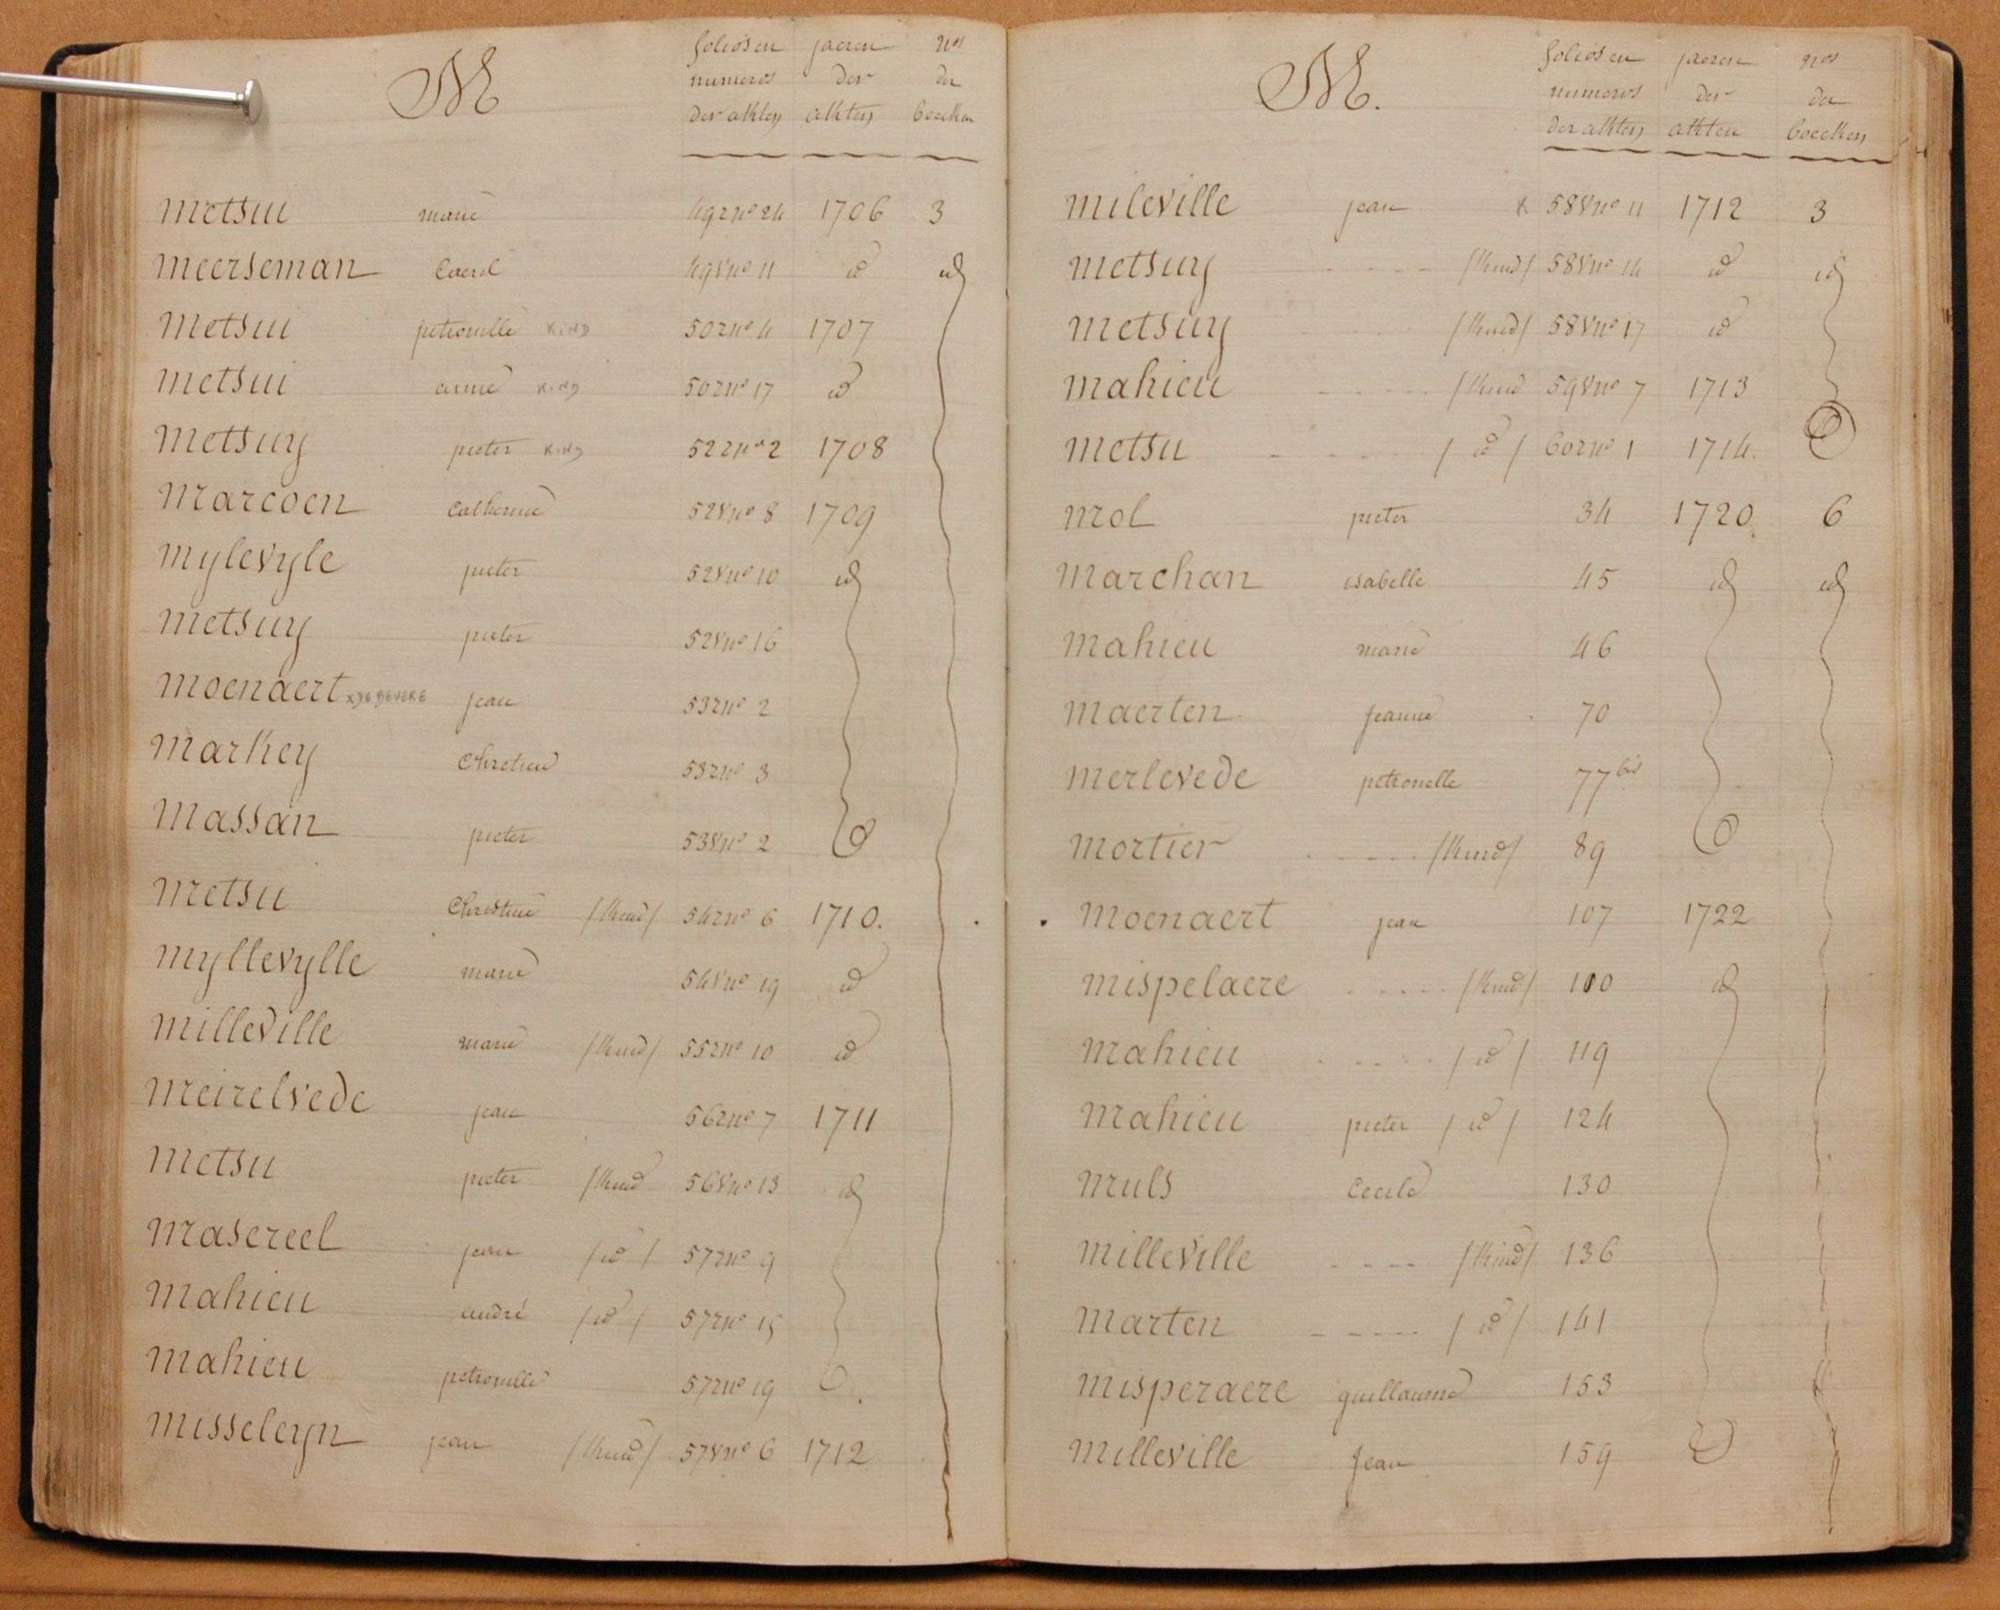 M
folios en jaeren nos
numeros der der
der akten akten boeken
metsui marie 492 no 24 1706 3
meerseman Carel 498 no 11 id id
metsui petronille KIND 502 no 4 1707
metsui anne KIND 502 no 17 id
metsuy pieter KIND 522 no 2 1708
marcoen Catherine 528 no 8 1709
mylevyle pieter 528 no 10 id
metsuy pieter 528 no 16
moenaert jean 532 no 2
markey Chretien 532 no 3
massan pieter 538 no 2
metsu Christine /kind/ 542 no 6 1710.
myllevylle marie 548 no 19 id
milleville marie /kind/ 552 no 10 id
meirelvede jean 562 no 7 1711
metsu pieter /kind 568 no 13 id
masereel jean /id/ 572 no 9
mahieu andré /id/ 572 no 15
mahieu petronille 572 no 19
misseleyn jean /kind/ 578 no 6 1712
M.
folios en jaeren nos
numeros der der
der akten akten boecken
mileville jean K 588 no 11 1712 3
metsuy /kind/ 588 no 14 id id
metsuy /kind/ 588 no 17 id
mahieu /kind 598 no 7 1713
metsu /id/ 602 no 1 1714.
mol pieter 34 1720 6
marchan isabelle 45 id id
mahieu marie 46
maerten jeanne 70
merlevede petronelle 77 bis
mortier /kind/ 89
moenaert jean 107 1722
mispelaere /kind/ 100 id
mahieu /id/ 119
mahieu pieter /id/ 124
muls Cecile 130
milleville /kind/ 136
marten /id/ 141
misperaere guillaume 153
milleville Jean 159